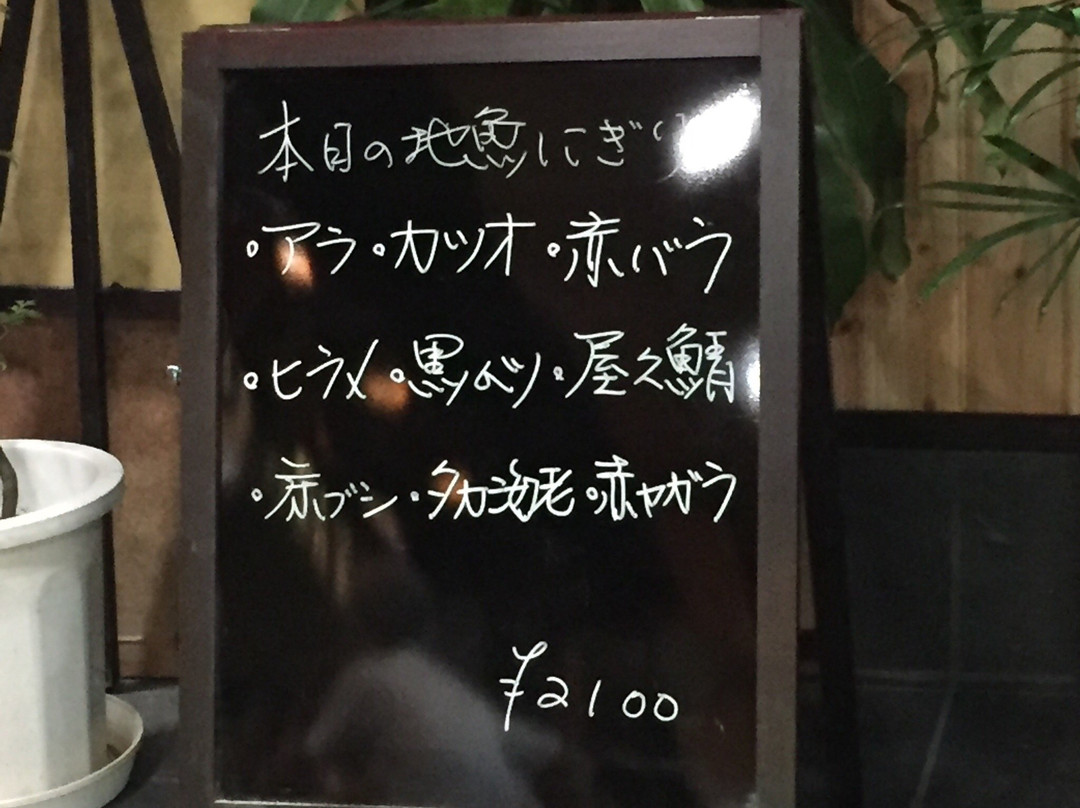 本日の地魚にぎり
・アラ・カツオ・赤バラ
・ヒラメ・黒ベソ・屋久鯖
・赤ブシ・タカ海老・赤ヤガラ
¥2100